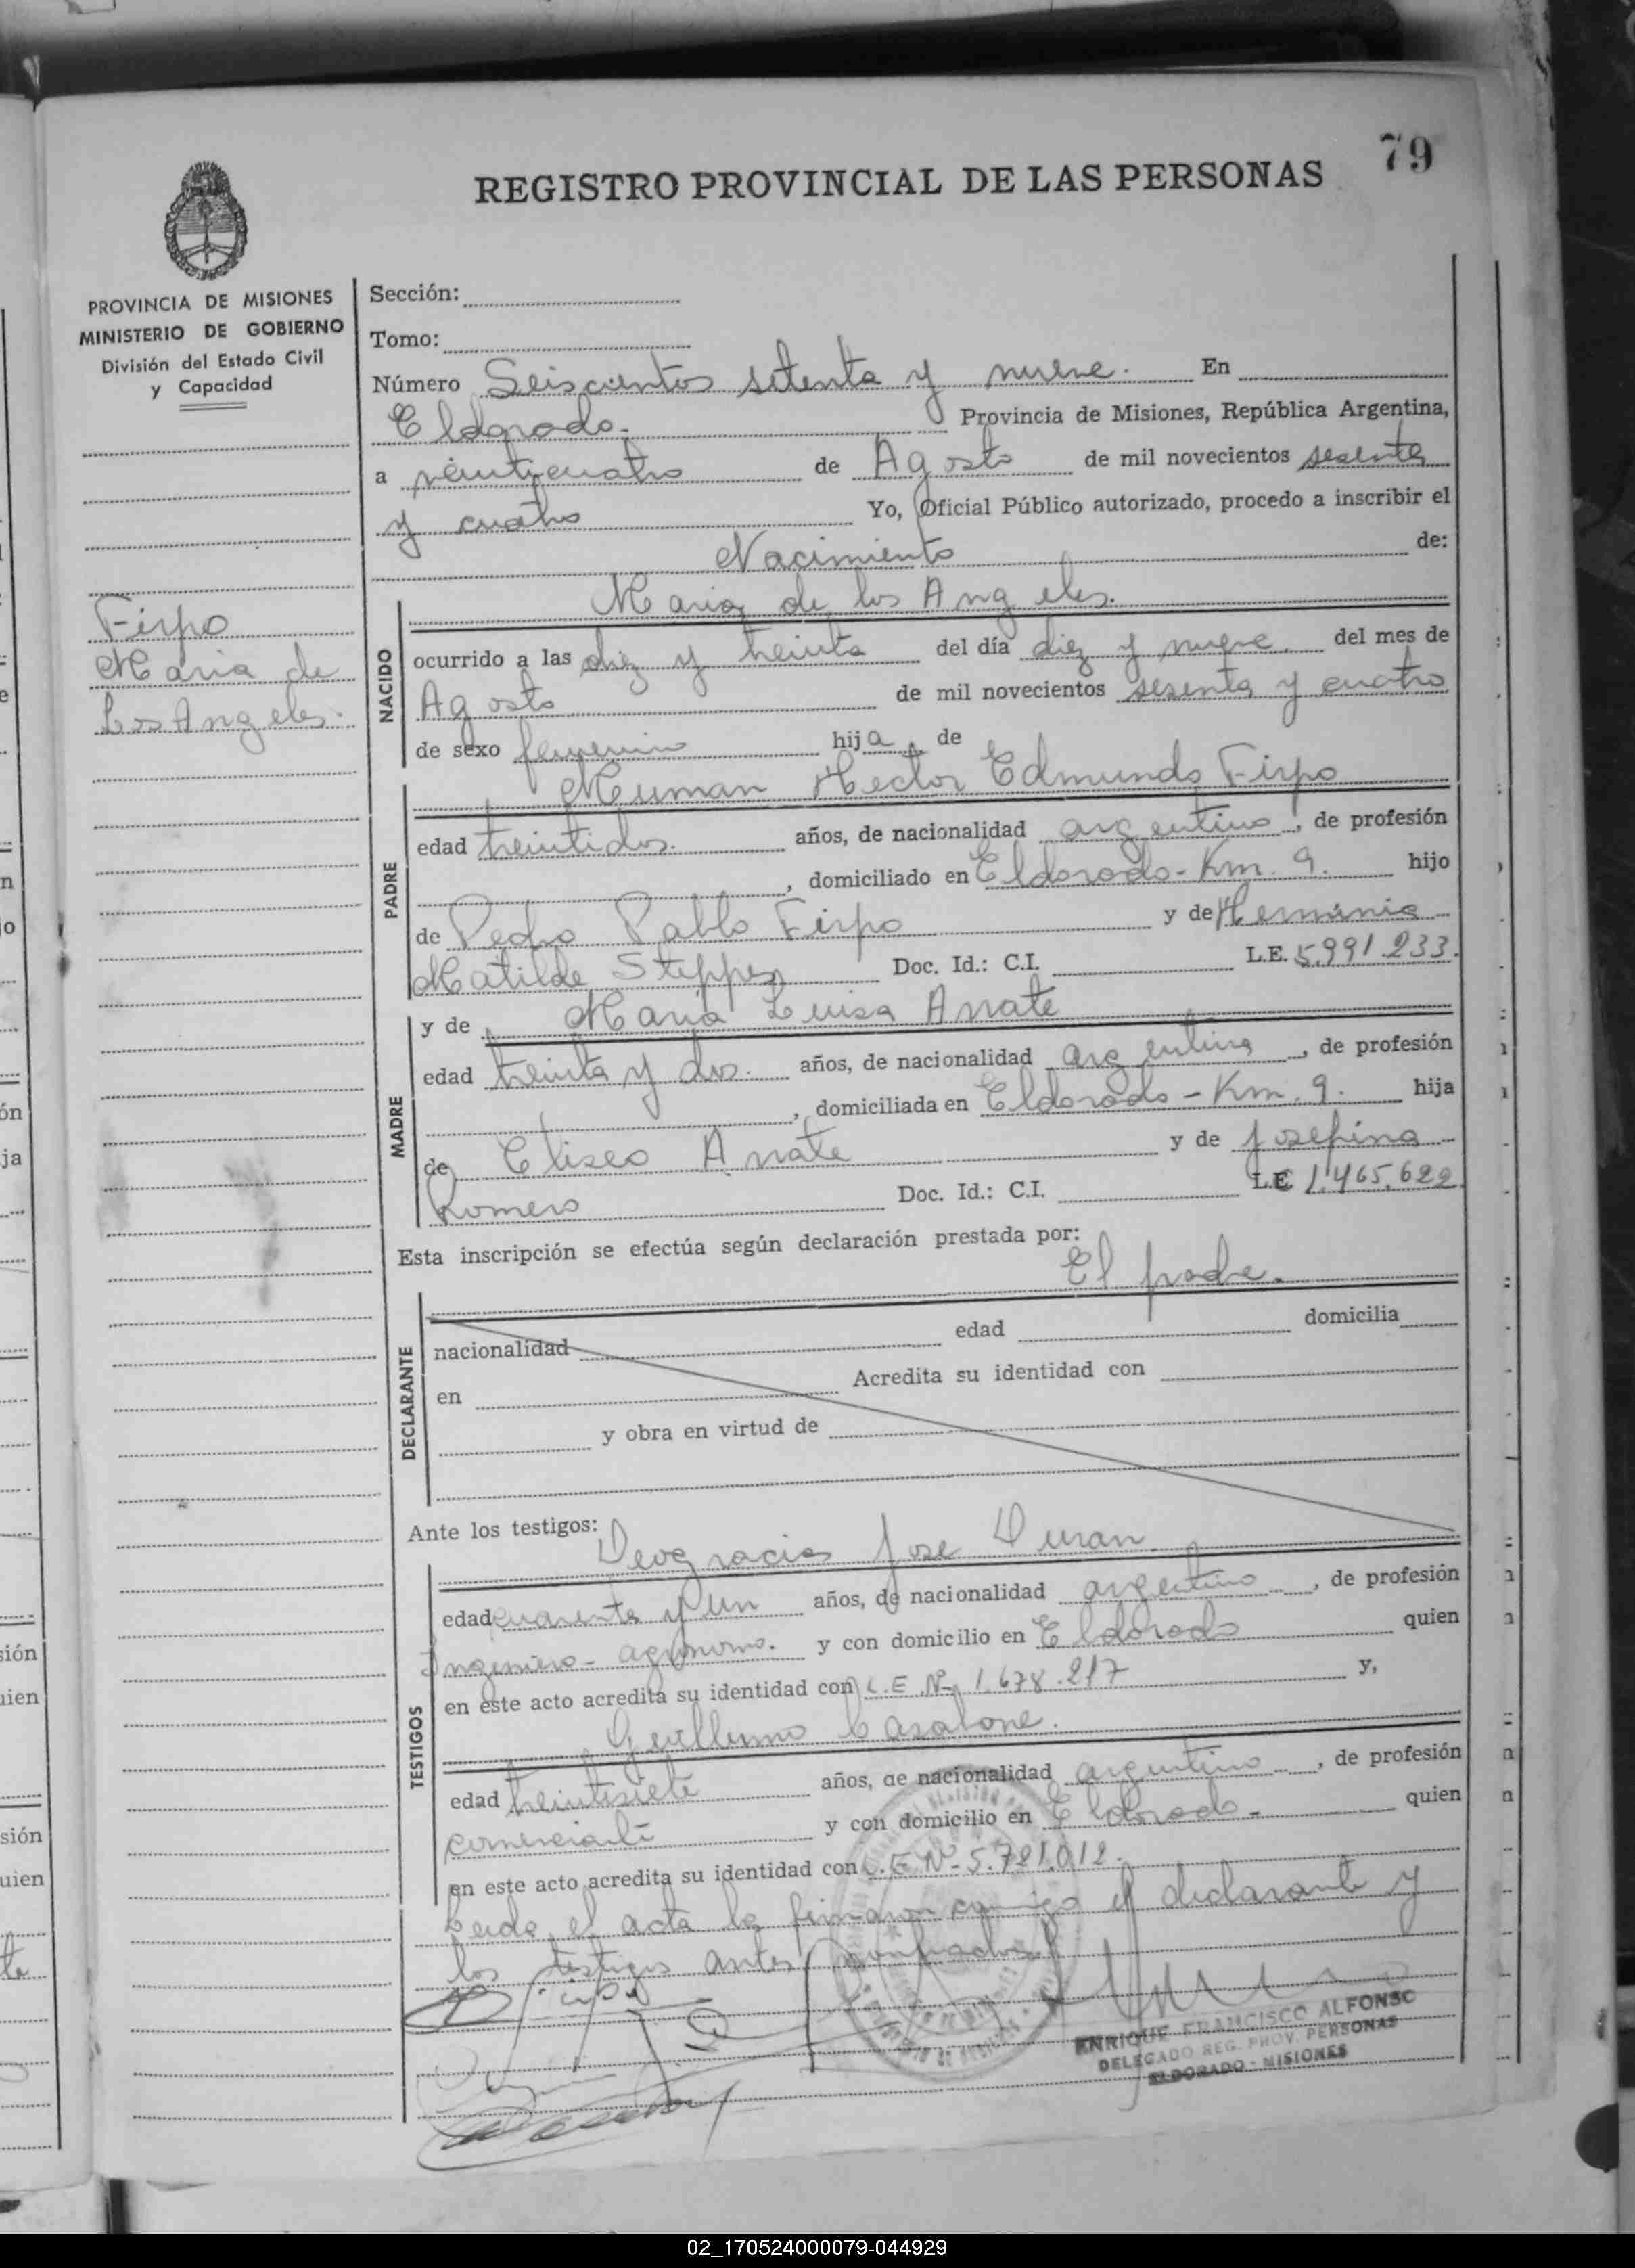 79
REGISTRO PROVINCIAL DE LAS PERSONAS
PROVINCIA DE MISIONES
MINISTERIO DE GOBIERNO
División del Estado Civil
y Capacidad
Firpo
Maria de
Los Angeles.
Sección:
Tomo:
Número Seiscientos setenta y nueve. En
Eldorado. Provincia de Misiones, República Argentina,
a veinticuatro de Agosto de mil novecientos sesenta
y cuatro Yo, Oficial Público autorizado, procedo a inscribir el
Nacimiento de:
NACIDO
Maria de los Angeles.
ocurrido a las diez y treinta del día diez y nueve. del mes de
Agosto de mil novecientos sesenta y cuatro
de sexo femenino hija de
PADRE
Hector Edmundo Firpo
edad treintidos. años, de nacionalidad argentino, de profesión
, domiciliado en Eldorado-Km. 9. hijo
de Pedro Pablo Firpo y de Herminia
Matilde Doc. Id.: C.I. L.E. 5.991.233.
MADRE
y de Maria Luisa Arrate
edad treinta y dos. años, de nacionalidad argentina, de profesión
, domiciliada en Eldorado-Km. 9. hija
de Eliseo Arrate y de Josefina
Romero Doc. Id.: C.I. L.C 1.465.622
Esta inscripción se efectúa según declaración prestada por:
El padre.
DECLARANTE
nacionalidad edad domicilia
en Acredita su identidad con
y obra en virtud de
Ante los testigos:
TESTIGOS
Deogracia Jose Duran.
edad cuarenta y un años, de nacionalidad argentino, de profesión
Ingeniero-agronomo. y con domicilio en Eldorado quien
en este acto acredita su identidad con L.E.Nº 1.678.217 y,
Guillermo Casalone.
edad treintisiete años, de nacionalidad argentino, de profesión
comerciante y con domicilio en Eldorado- quien
en este acto acredita su identidad con L.E.Nº-5.781.012.
Leida el acta la firmaron conmigo el declarante y
los testigos antes nombrados
ENRIQUE FRANCISCO ALFONSO
DELEGADO REG. PROV. PERSONAS
ELDORADO - MISIONES
02_170524000079-044929